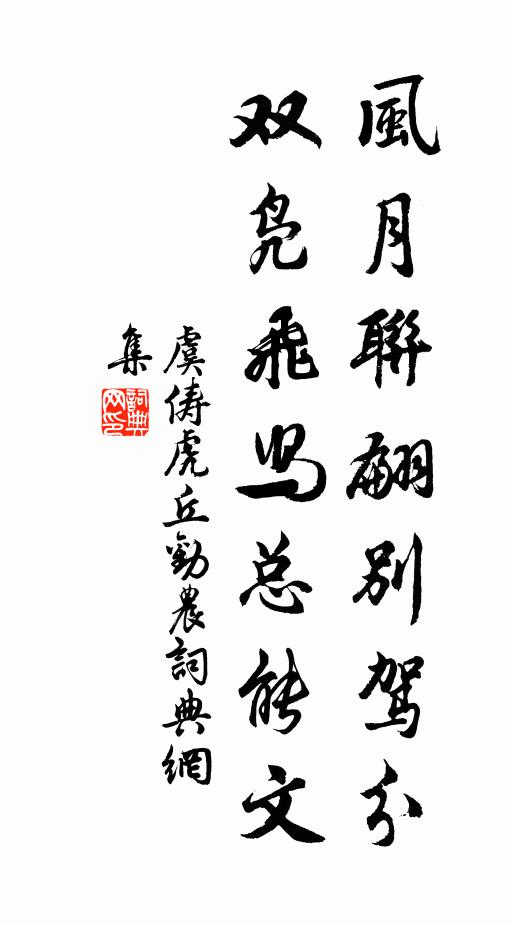 風月聯翩別駕分
双凫飛舄总能文
虞俦虎丘勸農詞典網
集
詞典网印